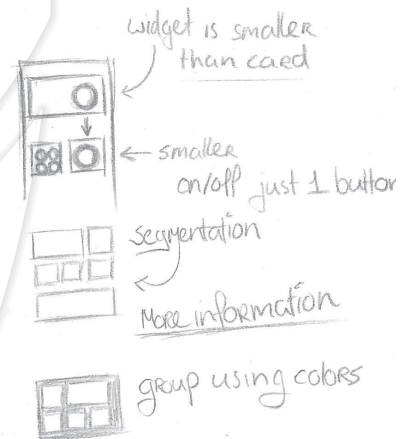 widget is smaller
than card
smaller
on/off just 1 button
segmentation
More information
group using colors